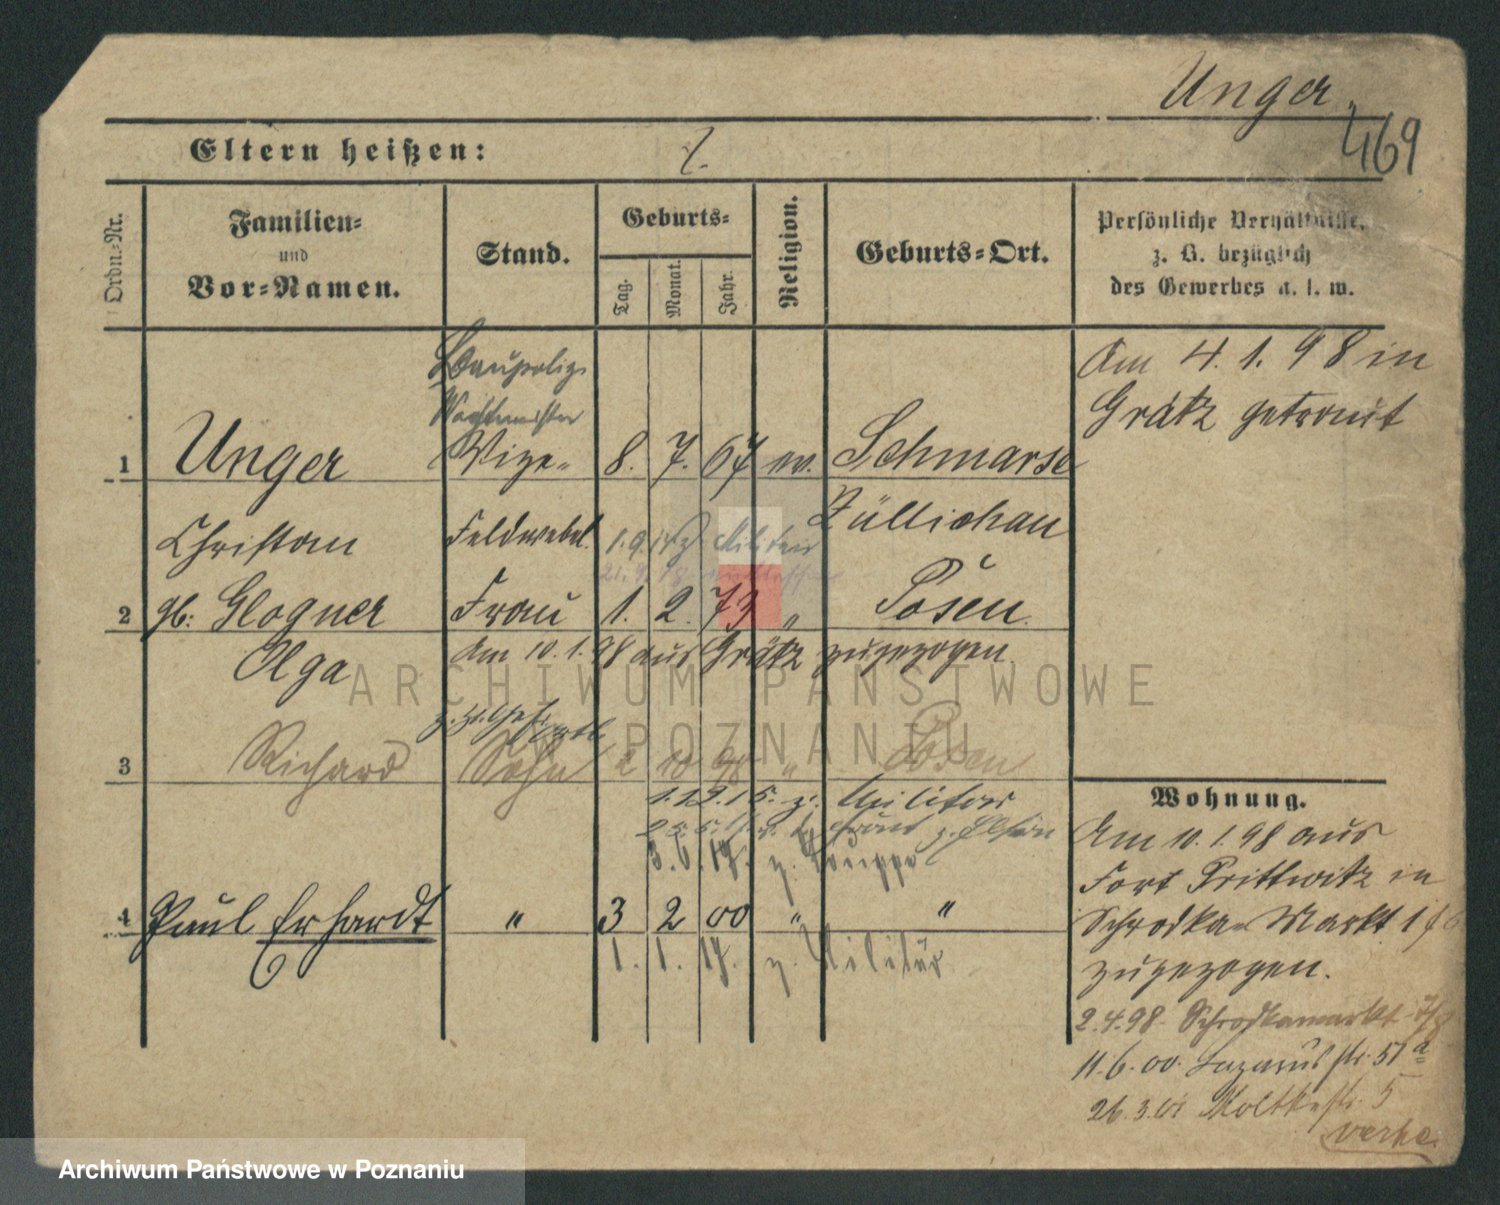 Unger.
469
Eltern heißen:
Ordn.-Nr.
Familien-
und
Vor-Namen.
Stand.
Geburts-
Tag.
Monat.
Jahr.
Religion.
Geburts-Ort.
Persönliche Verhältnisse,
z. B. bezüglich
des Gewerbes u. s. w.
Baupolizei
Wachtmeister
Am 4.1.98 in
Grätz getraut
1 Unger Vize- 8. 7. 67 ev. Schmarse
Züllichau
Christian Feldwebel. Militär
2 gb: Glogner Frau 1. 2. 73 " Posen
Olga Am 10.1.98 aus Grätz zugezogen.
ARCHIWUM PAŃSTWOWE
W POZNANIU
3 Richard Sohn 2 10 98 " Posen
1.12.15. z. Militär
3.6.17. z. Truppe
4 Paul Erhardt " 3 2 00 " "
1. 1. 17. z. Militär
Wohnung.
Am 10.1.98 aus
Fort Prittwitz in
Schrodka-Markt
zugezogen.
2.4.98 Schrodkamarkt
11.6.00. Lazarus str. 51a
26.3.01 Moltkestr. 5
verte
Archiwum Państwowe w Poznaniu